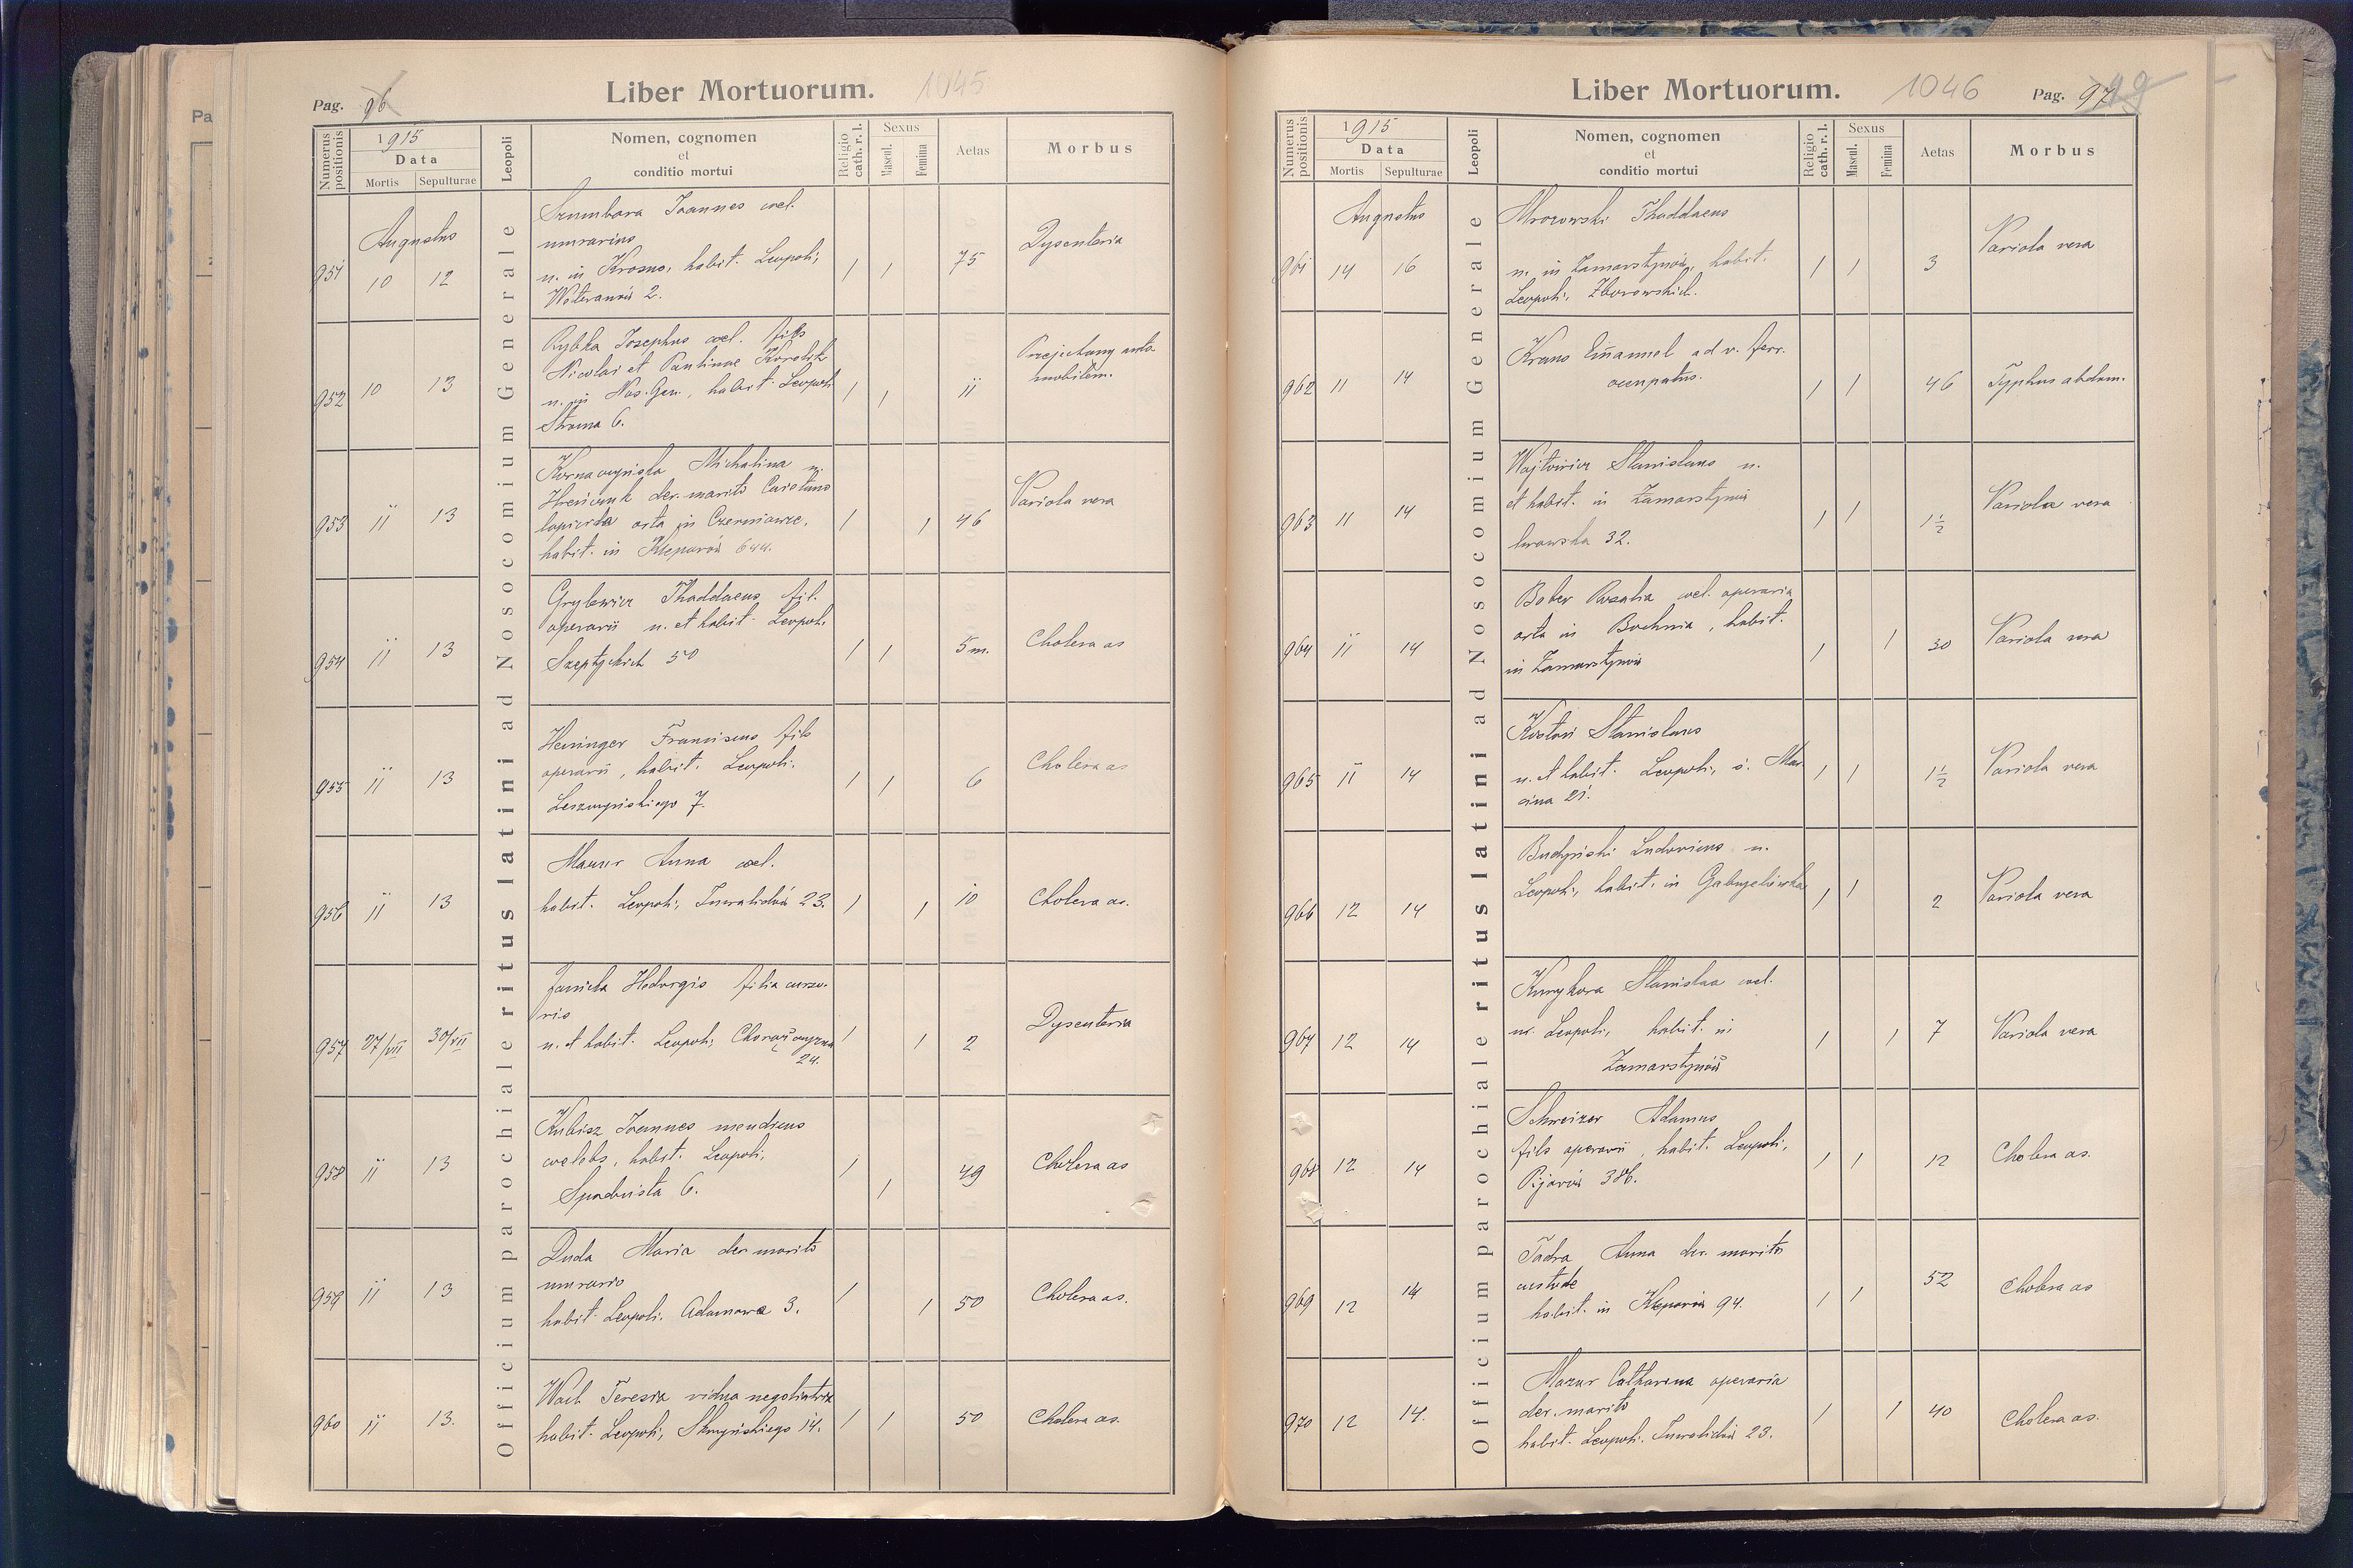 Pag. 96
Liber Mortuorum.
1045
Numerus positionis
1915
Data
Mortis
Sepulturae
Leopoli
Nomen, cognomen
et
conditio mortui
Religio cath. r. l.
Sexus
Mascul.
Femina
Aetas
Morbus
Officium parochiale ritus latini ad Nosocomium Generale
Augustus
951 10 12
Joannes cael.
murarius
n. in Krosno, habit. Leopoli,
Weteranów 2.
1 1 75 Dysenteria
952 10 13
Rybka Josephus cael. fils
Nicolai et Paulinae
n. in Nos. Gen., habit. Leopoli
Stroma 6.
1 1 11 Przejechany auto-
mobilem.
953 11 13
Michalina n.
der. marito
orta in
habit. in Kleparów 644.
1 1 46 Variola vera
954 11 13
Grylewicz Thaddaeus fil.
operarii n. et habit. Leopoli
Szeptyckich 50
1 1 5 m. Cholera as
955 11 13
Heninger Franciscus fils
operarii, habit. Leopoli.
Leszczyńskiego 7.
1 1 6 Cholera as
956 11 13
Mazur Anna cael.
habit. Leopoli, Inwalidów 23.
1 1 10 Cholera as.
957 27/VII 30/VII
Janicka Hedvigis filia curso-
ris
n. et habit. Leopoli,
24.
1 1 2 Dysenteria
958 11 13
Kubisz Joannes mendicus
caelebs, habit. Leopoli,
6.
1 1 49 Cholera as
959 11 13
Duda Maria der. marito
murario
habit. Leopoli. Adamowa 3.
1 1 50 Cholera as.
960 11 13.
Wach Teresia vidua negotiatrix
habit. Leopoli, Skrzyńskiego 14.
1 1 50 Cholera as.
Liber Mortuorum.
1046
Pag. 97
Numerus positionis
1915
Data
Mortis
Sepulturae
Leopoli
Nomen, cognomen
et
conditio mortui
Religio cath. r. l.
Sexus
Mascul.
Femina
Aetas
Morbus
Officium parochiale ritus latini ad Nosocomium Generale
Augustus
961 14 16
Mrozowski Thaddaeus
n. in Zamarstynów, habit.
Leopoli, Zborowskich.
1 1 3 Variola vera
962 11 14
Kraus Emanuel ad v. ferr.
occupatus.
1 1 46 Typhus abdom.
963 11 14
Wajtowicz Stanislaus n.
et habit. in Zamarstynów
lwowska 32.
1 1 1½ Variola vera
964 11 14
Bober Rosalia cael. operaria
orta in Bochnia, habit.
in Zamarstynów
1 1 30 Variola vera
965 11 14
Stanislaus
n. et habit. Leopoli, ś. Mar
cina 21.
1 1 1½ Variola vera
966 12 14
Budyński Ludovicus n.
Leopoli, habit. in Gabryelówka
1 1 2 Variola vera
967 12 14
Stanislaa cael.
n. Leopoli, habit. in
Zamarstynów
1 1 7 Variola vera
968 12 14
Schweizer Adamus
fils operarii, habit. Leopoli,
Pijarów 38b.
1 1 12 Cholera as.
969 12 14
Tadra Anna der. marito
custode
habit. in Kleparów 94.
1 1 52 Cholera as
970 12 14.
Mazur Catharina operaria
der. marito
habit. Leopoli. Inwalidów 23.
1 1 40 Cholera as.